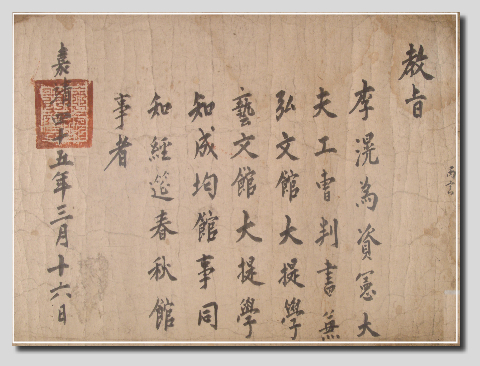 教旨
李滉為資憲大
夫工曹判書兼
弘文館大提學
藝文館大提學
知成均館事同
知經筵春秋館
事者
嘉靖四十五年三月十六日